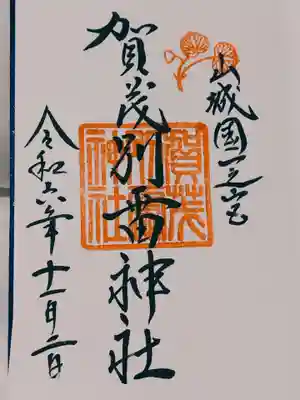 山城國一之宮
賀茂別雷神社
賀茂
別雷
神社
令和六年十一月二日